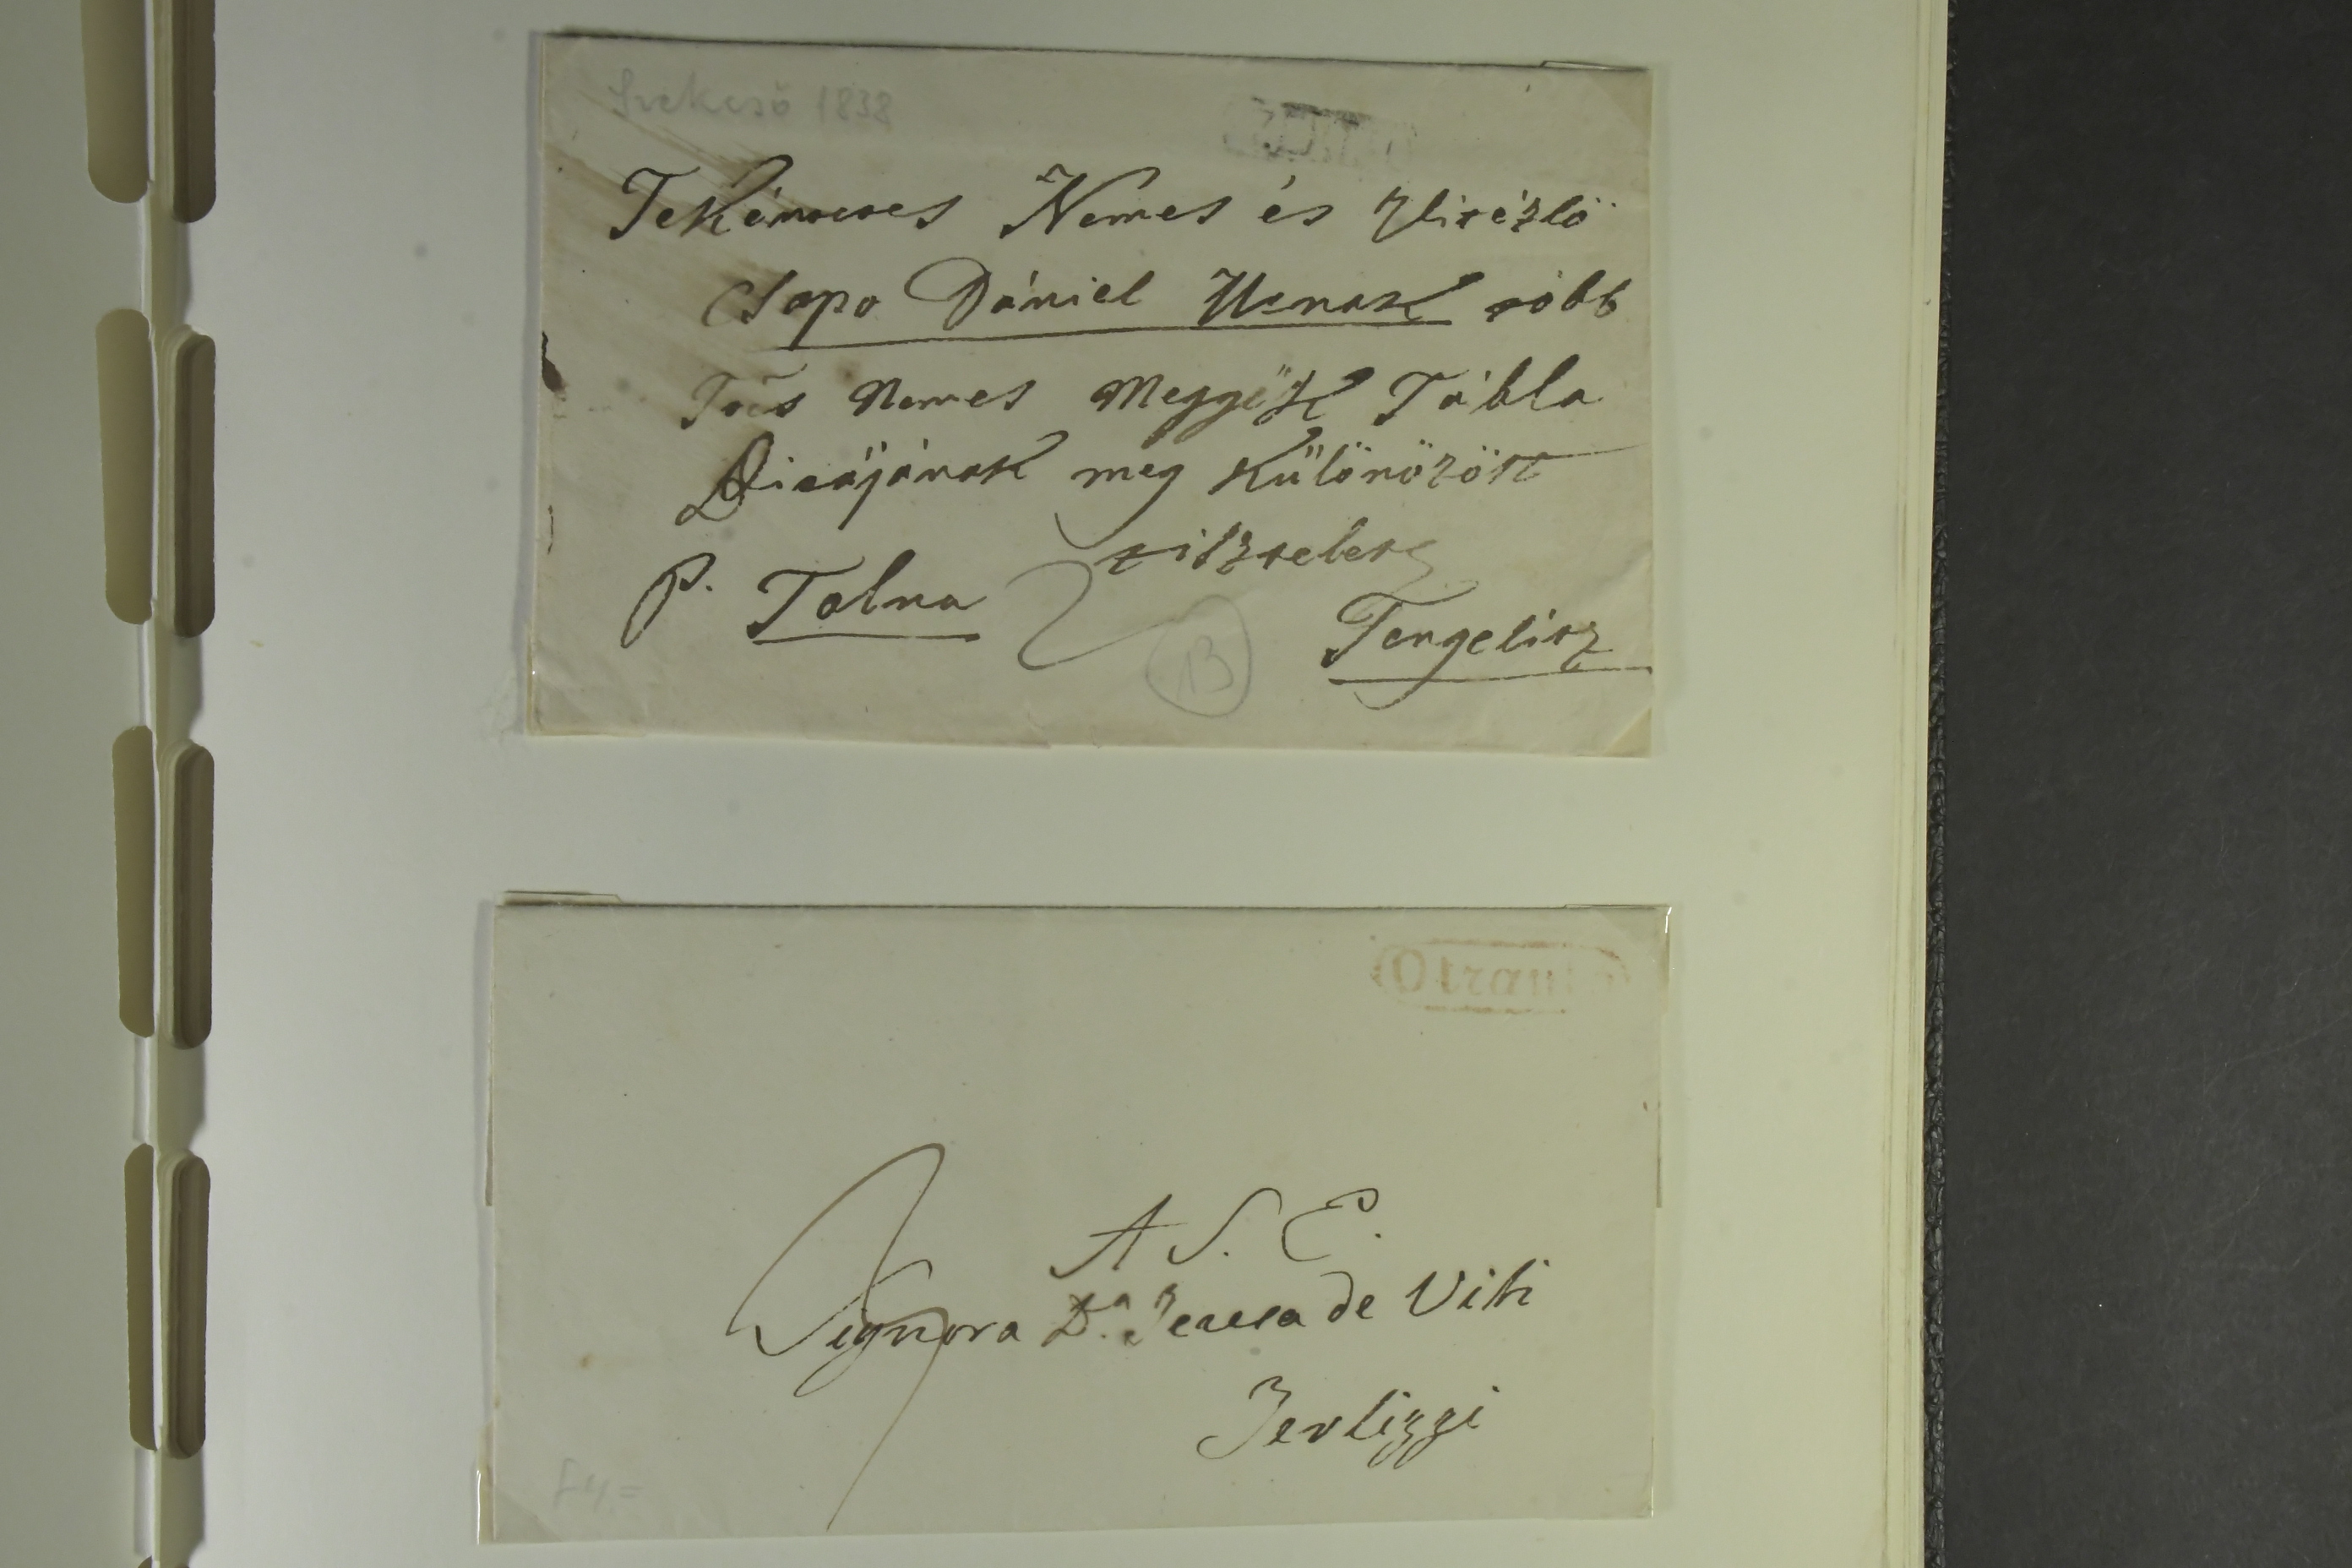 1838
Tekéntetes Nemes és Vitézlö
Csapo Dániel Urnak több
Tets Nemes Megyék Tábla
Birájának meg Különözött
tisztelett
P. Tolna
Tengelitz
13
Otranto
A S. E.
Signora D.a Teresa de Viti
Terlizzi